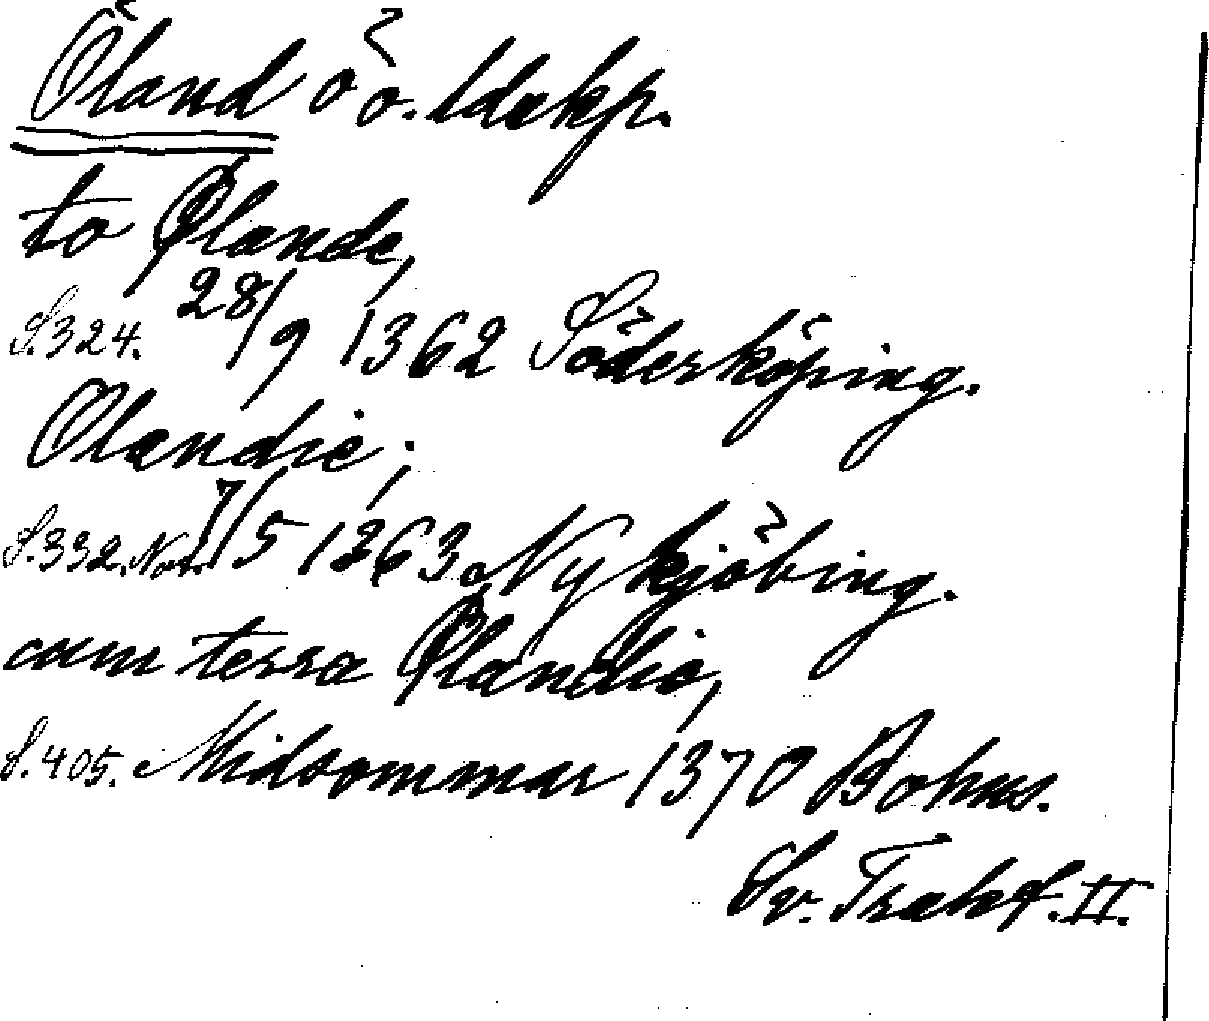 Öland ö o. ldskp.
to Ølande,
S.324. 28/9 1362 Söderköping.
Olandie;
S.332. Not. 7/5 1363 Nykjöbing.
cum terra Ølandie,
S.405. Midsommar 1370 Bohus.
Sv. Trakt. II.